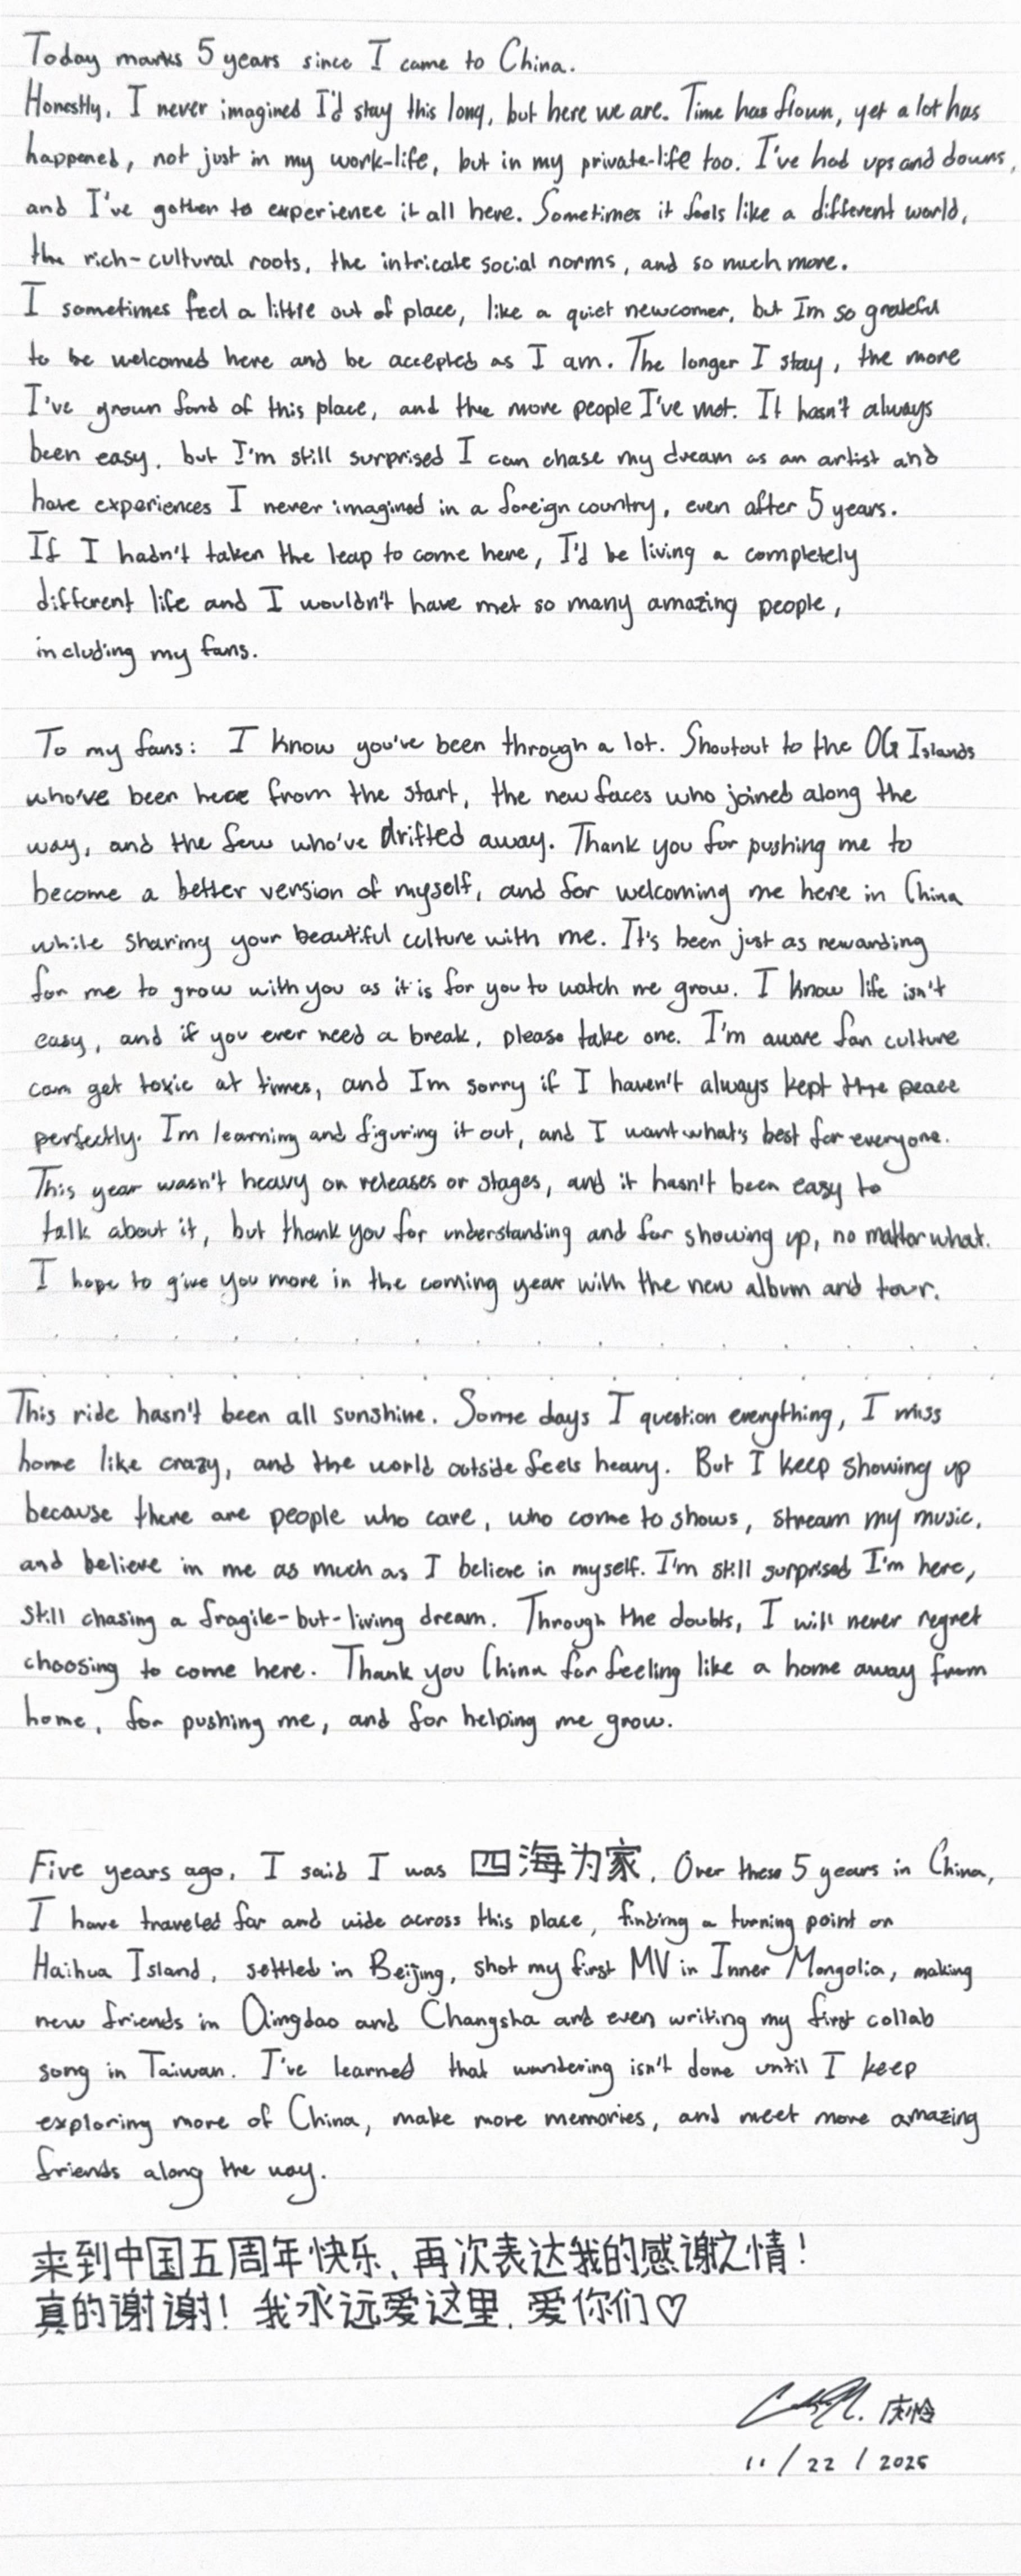 Today marks 5 years since I came to China.
Honestly, I never imagined I'd stay this long, but here we are. Time has flown, yet a lot has
happened, not just in my work-life, but in my private-life too. I've had ups and downs,
and I've gotten to experience it all here. Sometimes it feels like a different world,
the rich-cultural roots, the intricate social norms, and so much more.
I sometimes feel a little out of place, like a quiet newcomer, but Im so grateful
to be welcomed here and be accepted as I am. The longer I stay, the more
I've grown fond of this place, and the more people I've met. It hasn't always
been easy, but I'm still surprised I can chase my dream as an artist and
have experiences I never imagined in a foreign country, even after 5 years.
If I hadn't taken the leap to come here, I'd be living a completely
different life and I wouldn't have met so many amazing people,
including my fans.
To my fans: I know you've been through a lot. Shoutout to the OG Islands
who've been here from the start, the new faces who joined along the
way, and the few who've drifted away. Thank you for pushing me to
become a better version of myself, and for welcoming me here in China
while sharing your beautiful culture with me. It's been just as rewarding
for me to grow with you as it is for you to watch me grow. I know life isn't
easy, and if you ever need a break, please take one. I'm aware fan culture
can get toxic at times, and Im sorry if I haven't always kept the peace
perfectly. Im learning and figuring it out, and I want what's best for everyone.
This year wasn't heavy on releases or stages, and it hasn't been easy to
talk about it, but thank you for understanding and for showing up, no matter what.
I hope to give you more in the coming year with the new album and tour.
This ride hasn't been all sunshine. Some days I question everything, I miss
home like crazy, and the world outside feels heavy. But I keep showing up
because there are people who care, who come to shows, stream my music,
and believe in me as much as I believe in myself. I'm still surprised I'm here,
still chasing a fragile-but-living dream. Through the doubts, I will never regret
choosing to come here. Thank you China for feeling like a home away from
home, for pushing me, and for helping me grow.
Five years ago, I said I was 四海为家. Over these 5 years in China,
I have traveled far and wide across this place, finding a turning point on
Haihua Island, settled in Beijing, shot my first MV in Inner Mongolia, making
new friends in Qingdao and Changsha and even writing my first collab
song in Taiwan. I've learned that wandering isn't done until I keep
exploring more of China, make more memories, and meet more amazing
friends along the way.
来到中国五周年快乐、再次表达我的感谢之情！
真的谢谢！我永远爱这里.爱你们♡
庆怜
11/22/2025